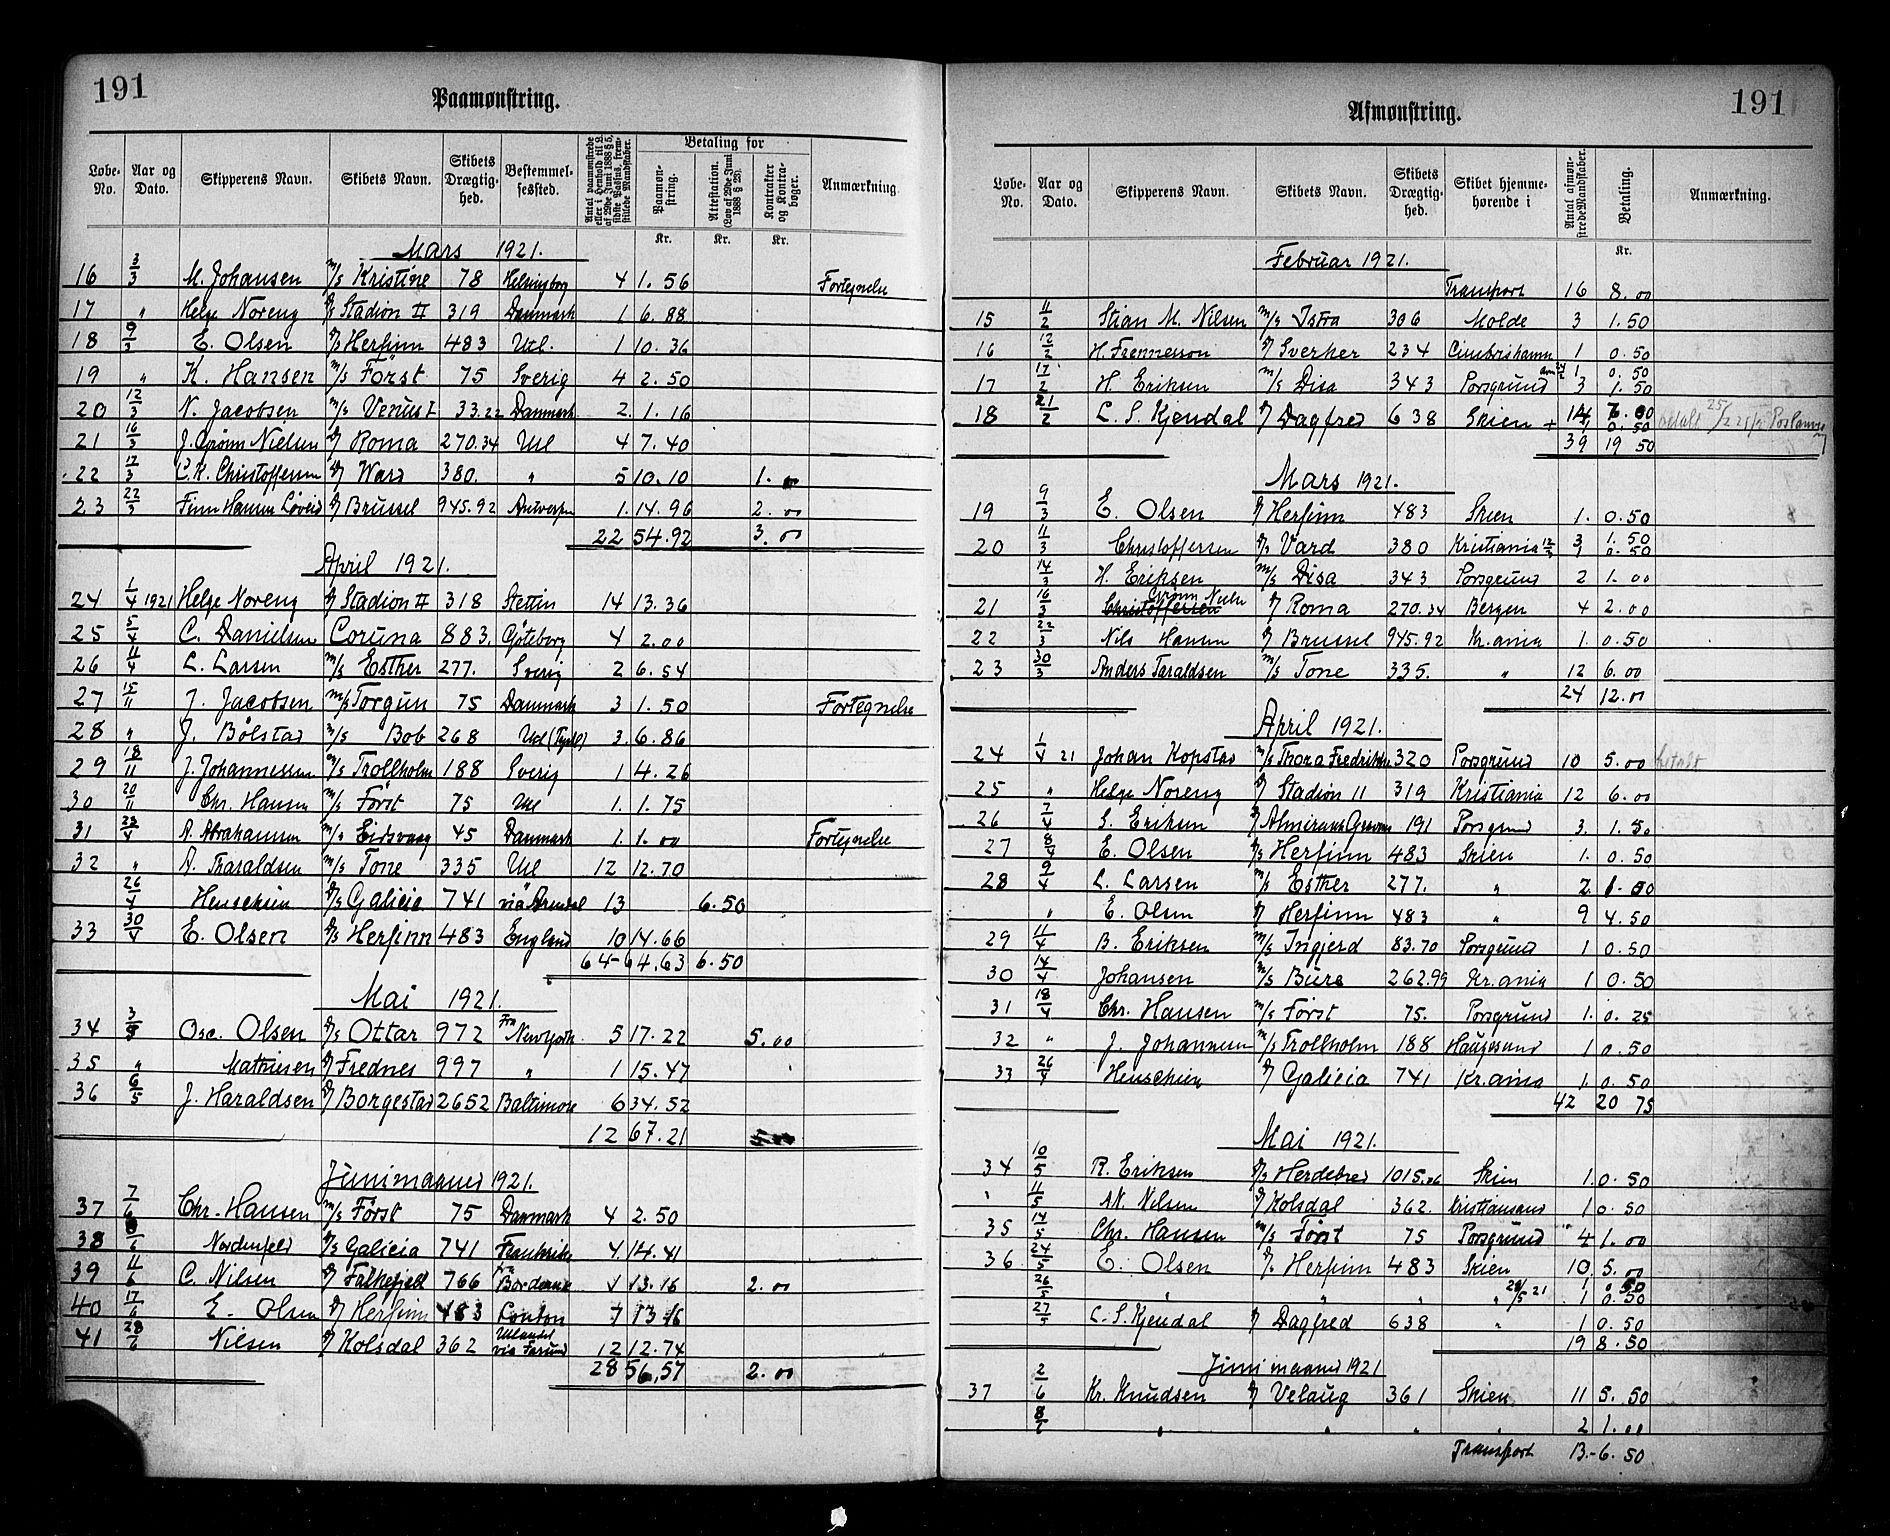 191
Paamønstring.
Løbe-No. Aar og Dato. Skipperens Navn. Skibets Navn. Skibets Drægtighed. Bestemmelsessted. Antal paamønstrede eller i Henhold til L. af 29de Juni 1888 § 5, sidste Passus, fremstillede Mandskaber. Betaling for Paamønstring. Attestation. (Lov af 29de Juni 1888 § 28). Kontrakter og Kontrabøger. Anmærkning
Kr. Kr. Kr.
Mars 1921.
16 3/3 M. Johansen m/s Kristine 78 Helsingborg 4 1.56 Fortegnelse
17 " Helge Noreng d/s Stadion II 319 Danmark 1 6.88
18 9/3 E. Olsen d/s Herfinn 483 Utl. 1 10.36
19 " K. Hansen m/s Först 75 Sverig 4 2.50
20 12/3 N. Jacobsen m/s Venus I 33.22 Danmark 2. 1.16
21 16/3 J. Grönn Nielsen d/s Roma 270.34 Utl 4 7.40
22 17/3 C.K. Christoffersen d/s Ward 380. " 5 10.10 1.00
23 22/3 Finn Hansen Løveid d/s Brüssel 945.92 Antwerpen 1. 14.96 2.00
22 54.92 3.00
April 1921.
24 1/4 1921 Helge Noreng d/s Stadion II 318 Stettin 14 13.36
25 5/4 C. Danielsen Coruna 883. Göteborg 4 2.00
26 11/4 L. Larsen m/s Esther 277. Sverig 2 6.54
27 15/11 J. Jacobsen m/s Torgun 75 Danmark 3 1.50 Fortegnelse
28 " J. Bølstad m/s Bob 268 Utl 3. 6.86
29 18/11 J. Johannessen m/s Trollholm 188 Sverig 1 4.26
30 20/11 Chr. Hansen m/s Först 75 Utl 1. 1.75
31 23/4 A. Abrahamsen m/s Eidsvaag 45 Danmark 1. 1.00 Fortegnelse
32 " A. Tharaldsen m/s Tone 335 Utl 12 12.70
26/4 Henschien d/s Galicia 741 via Arendal 13 6.50
33 30/4 E. Olsen d/s Herfinn 483 England 10 14.66
64 - 64.63 6.50
Mai 1921.
34 3/5 Osc. Olsen d/s Ottar 972 Fra Newyork 5 17.22 5.00
35 " Mathiesen d/s Frednes 997 " 1 15.47
36 6/5 J. Haraldsen d/s Borgestad 2652 Baltimore 6 34.52
12 67.21 5.00
Junimaaned 1921.
37 7/6 Chr. Hansen m/s Först 75 Danmark 4 2.50
38 8/6 Nordenfeld d/s Galicia 741 Frankrike 4. 14.41
39 11/6 C. Nilsen d/s Falkefjell 766 fra Bordeaux 1 13.16 2.00
40 17/6 E. Olsen d/s Herfinn 483 London 7 13.16
41 28/6 Nilsen d/s Kolsdal 362 Utlandet via Farsund 12 12.74
28 56,57 2.00
191
Afmønstring.
Løbe-No. Aar og Dato. Skipperens Navn. Skibets Navn. Skibets Drægtighed. Skibet hjemmehørende i Antal afmønstrede Mandskaber. Betaling. Anmærkning.
Kr.
Februar 1921.
Transport 16 8.00
15 11/2 Stian M. Nilsen m/s Istra 306 Molde 3 1.50
16 12/2 H. Frennesson d/s Sverker 234 Cimbrishamn 1 0.50
17 17/2 H. Eriksen m/s Disa 343 Porsgrund 24/2 1 0.50 3 1.50
18 21/2 L. S. Kjendal d/s Dagfred 638 Skien + 14 7.00 1 0.50 betalt 25/2 21
39 19 50
Mars 1921.
19 9/3 E. Olsen d/s Herfinn 483 Skien 1. 0.50
20 11/3 Christoffersen d/s Vard 380 Kristiania 12/3 3 1.50 1 0.50
14/3 H. Eriksen m/s Disa 343 Porsgrund 2 1.00
21 16/3 Christoffersen Grönn Nielsen d/s Roma 270.34 Bergen 4 2.00
22 22/3 Nils Hansen d/s Brussel 945.92 Kr.ania 1. 0.50
23 30/3 Anders Taraldsen m/s Tone 335. " 12 6.00
24 12.00
April 1921.
24 1/4 21 Johan Kopstad m/s Thora Fredrikke 320 Porsgrund 10 5.00 betalt
25 " Helge Noreng d/s Stadion II 319 Kristiania 12 6.00
26 7/4 S. Eriksen 191 Porsgrund 3. 1.50
27 8/4 E. Olsen d/s Herfinn 483 Skien 1. 0.50
28 9/4 L. Larsen m/s Esther 277. " 2 1.00
" E. Olsen d/s Herfinn 483 " 9 4.50
29 11/4 B. Eriksen m/s Ingjerd 83.70 Porsgrund 1 0.50
30 14/4 Johansen m/s Büra 262.99 Kr.ania 1 0.50
31 18/4 Chr. Hansen m/s Først 75. Porsgrund 1. 0.25
32 " J. Johannesen m/s Trollholm 188 Haugesund 1 0.50
33 26/4 Henschien d/s Galicia 741 Kr.ania 1. 0.50
42 20 75
Mai 1921.
34 10/5 R. Eriksen d/s Herdebred 1015.06 Skien 1. 0.50
" 11/5 M. Nilsen d/s Kolsdal 362. Kristiansand 1 0.50
35 14/5 Chr. Hansen m/s Først 75 Porsgrund 4 1.00
36 24/5 E. Olsen d/s Herfinn 483 Skien 10 5.00
26/5 " " " " 28/5 21 1 0.50 1 0.50
27/5 L. S. Kjendal d/s Dagfred 638 " 1 0.50
19 8.50
Junimaaned 1921
37 2/6 Kr. Knudsen d/s Velaug 361 Skien 11 5.50
8/6 " " " " 2 1.00
Transport 13.- 6.50